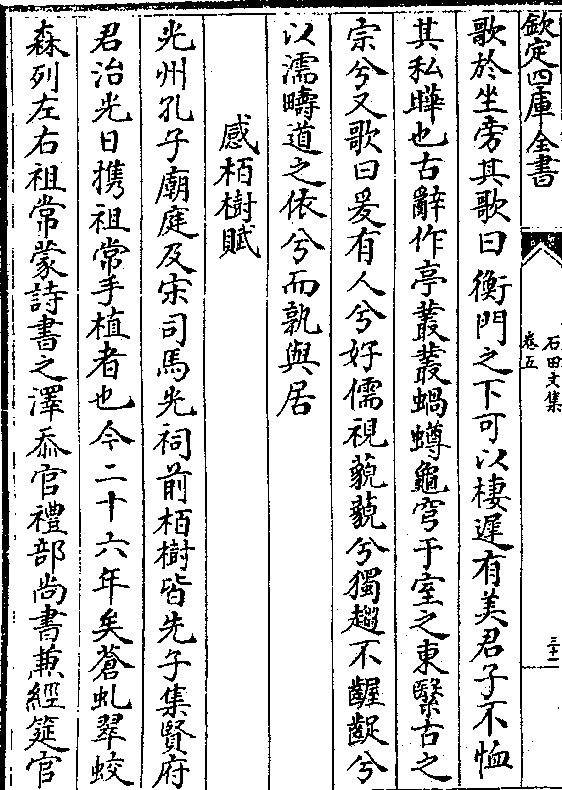 欽定四庫全書
石田文集
卷五
三十一
歌於坐旁其歌曰衡門之下可以棲遲有美君子不恤
其私曄也古辭作亭叢叢蝸蟳龜穹于室之東繄古之
宗兮又歌曰爰有人兮好儒視藐藐兮獨趨不齷齪兮
以濡疇道之依兮而孰與居
感栢樹賦
光州孔子廟庭及宋司馬光祠前栢樹皆先子集賢府
君治光日攜祖常手植者也今二十六年矣蒼虬翠蛟
森列左右祖常蒙詩書之澤忝官禮部尚書蒹經筵官